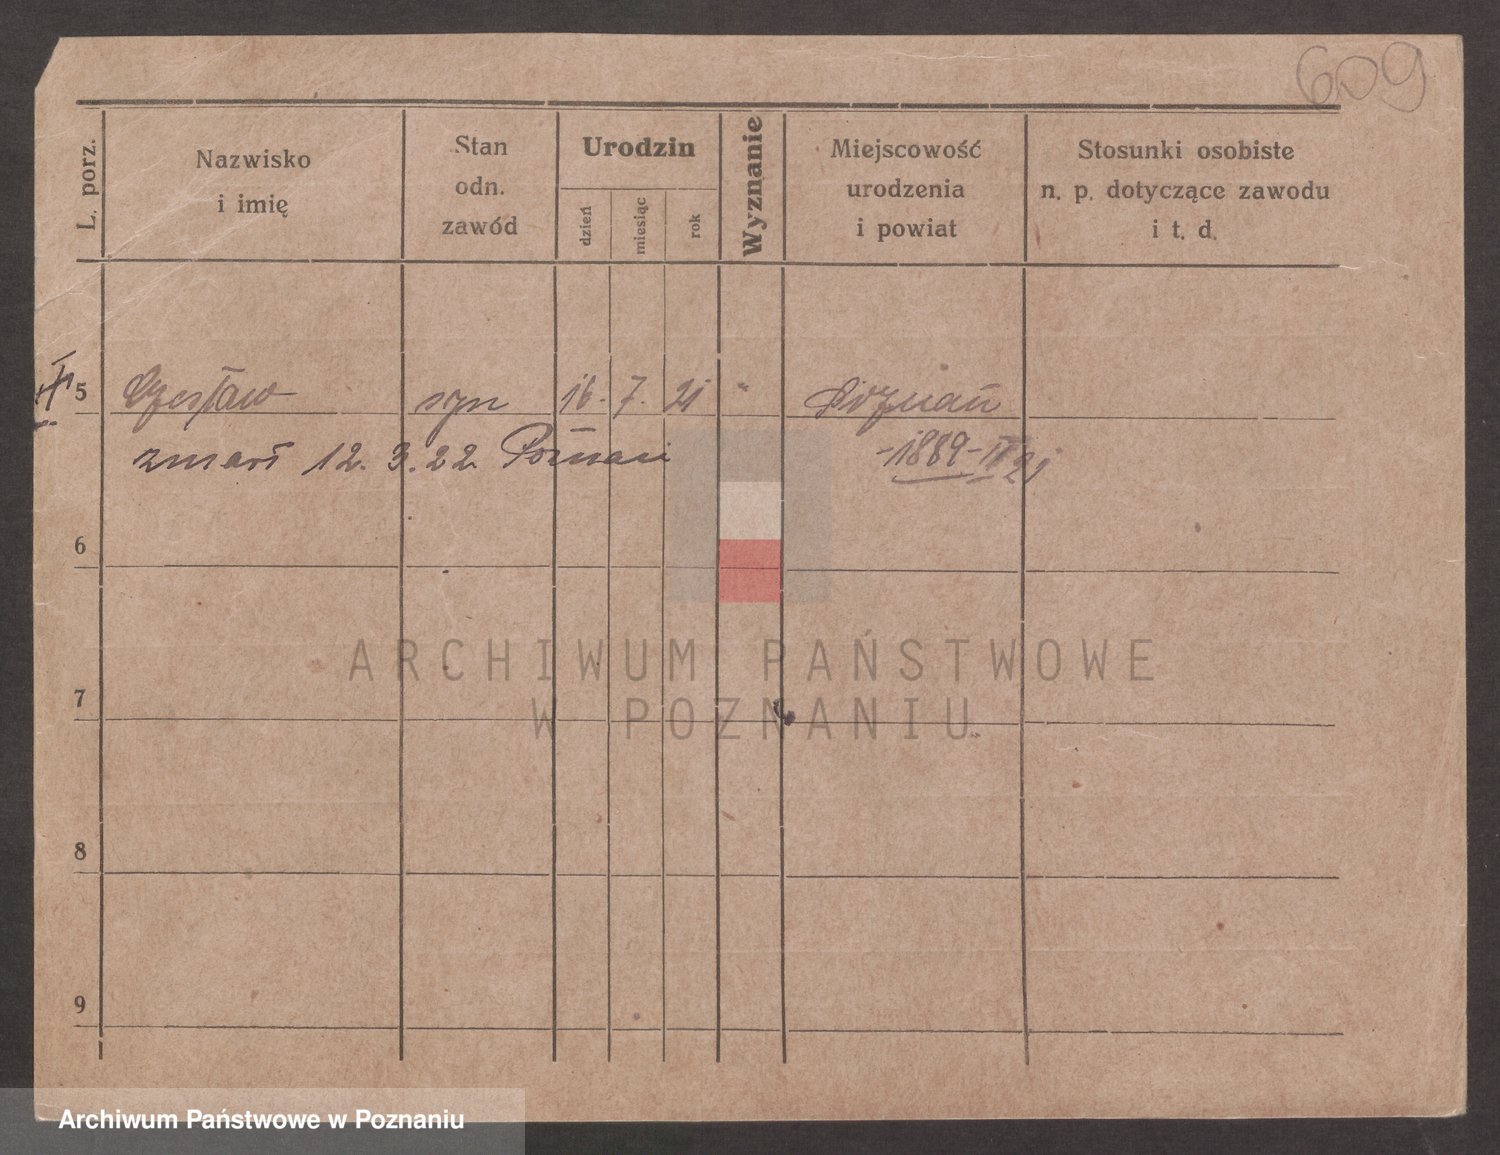 609
L. porz.
Nazwisko
i imię
Stan
odn.
zawód
Urodzin
dzień
miesiąc
rok
Wyznanie
Miejscowość
urodzenia
i powiat
Stosunki osobiste
n. p. dotyczące zawodu
i t. d.
5 Czesław syn 16. 7. 21 " Poznań
zmarł 12. 3. 22 Poznań -1889-
6
7
8
9
ARCHIWUM PAŃSTWOWE
W POZNANIU
Archiwum Państwowe w Poznaniu